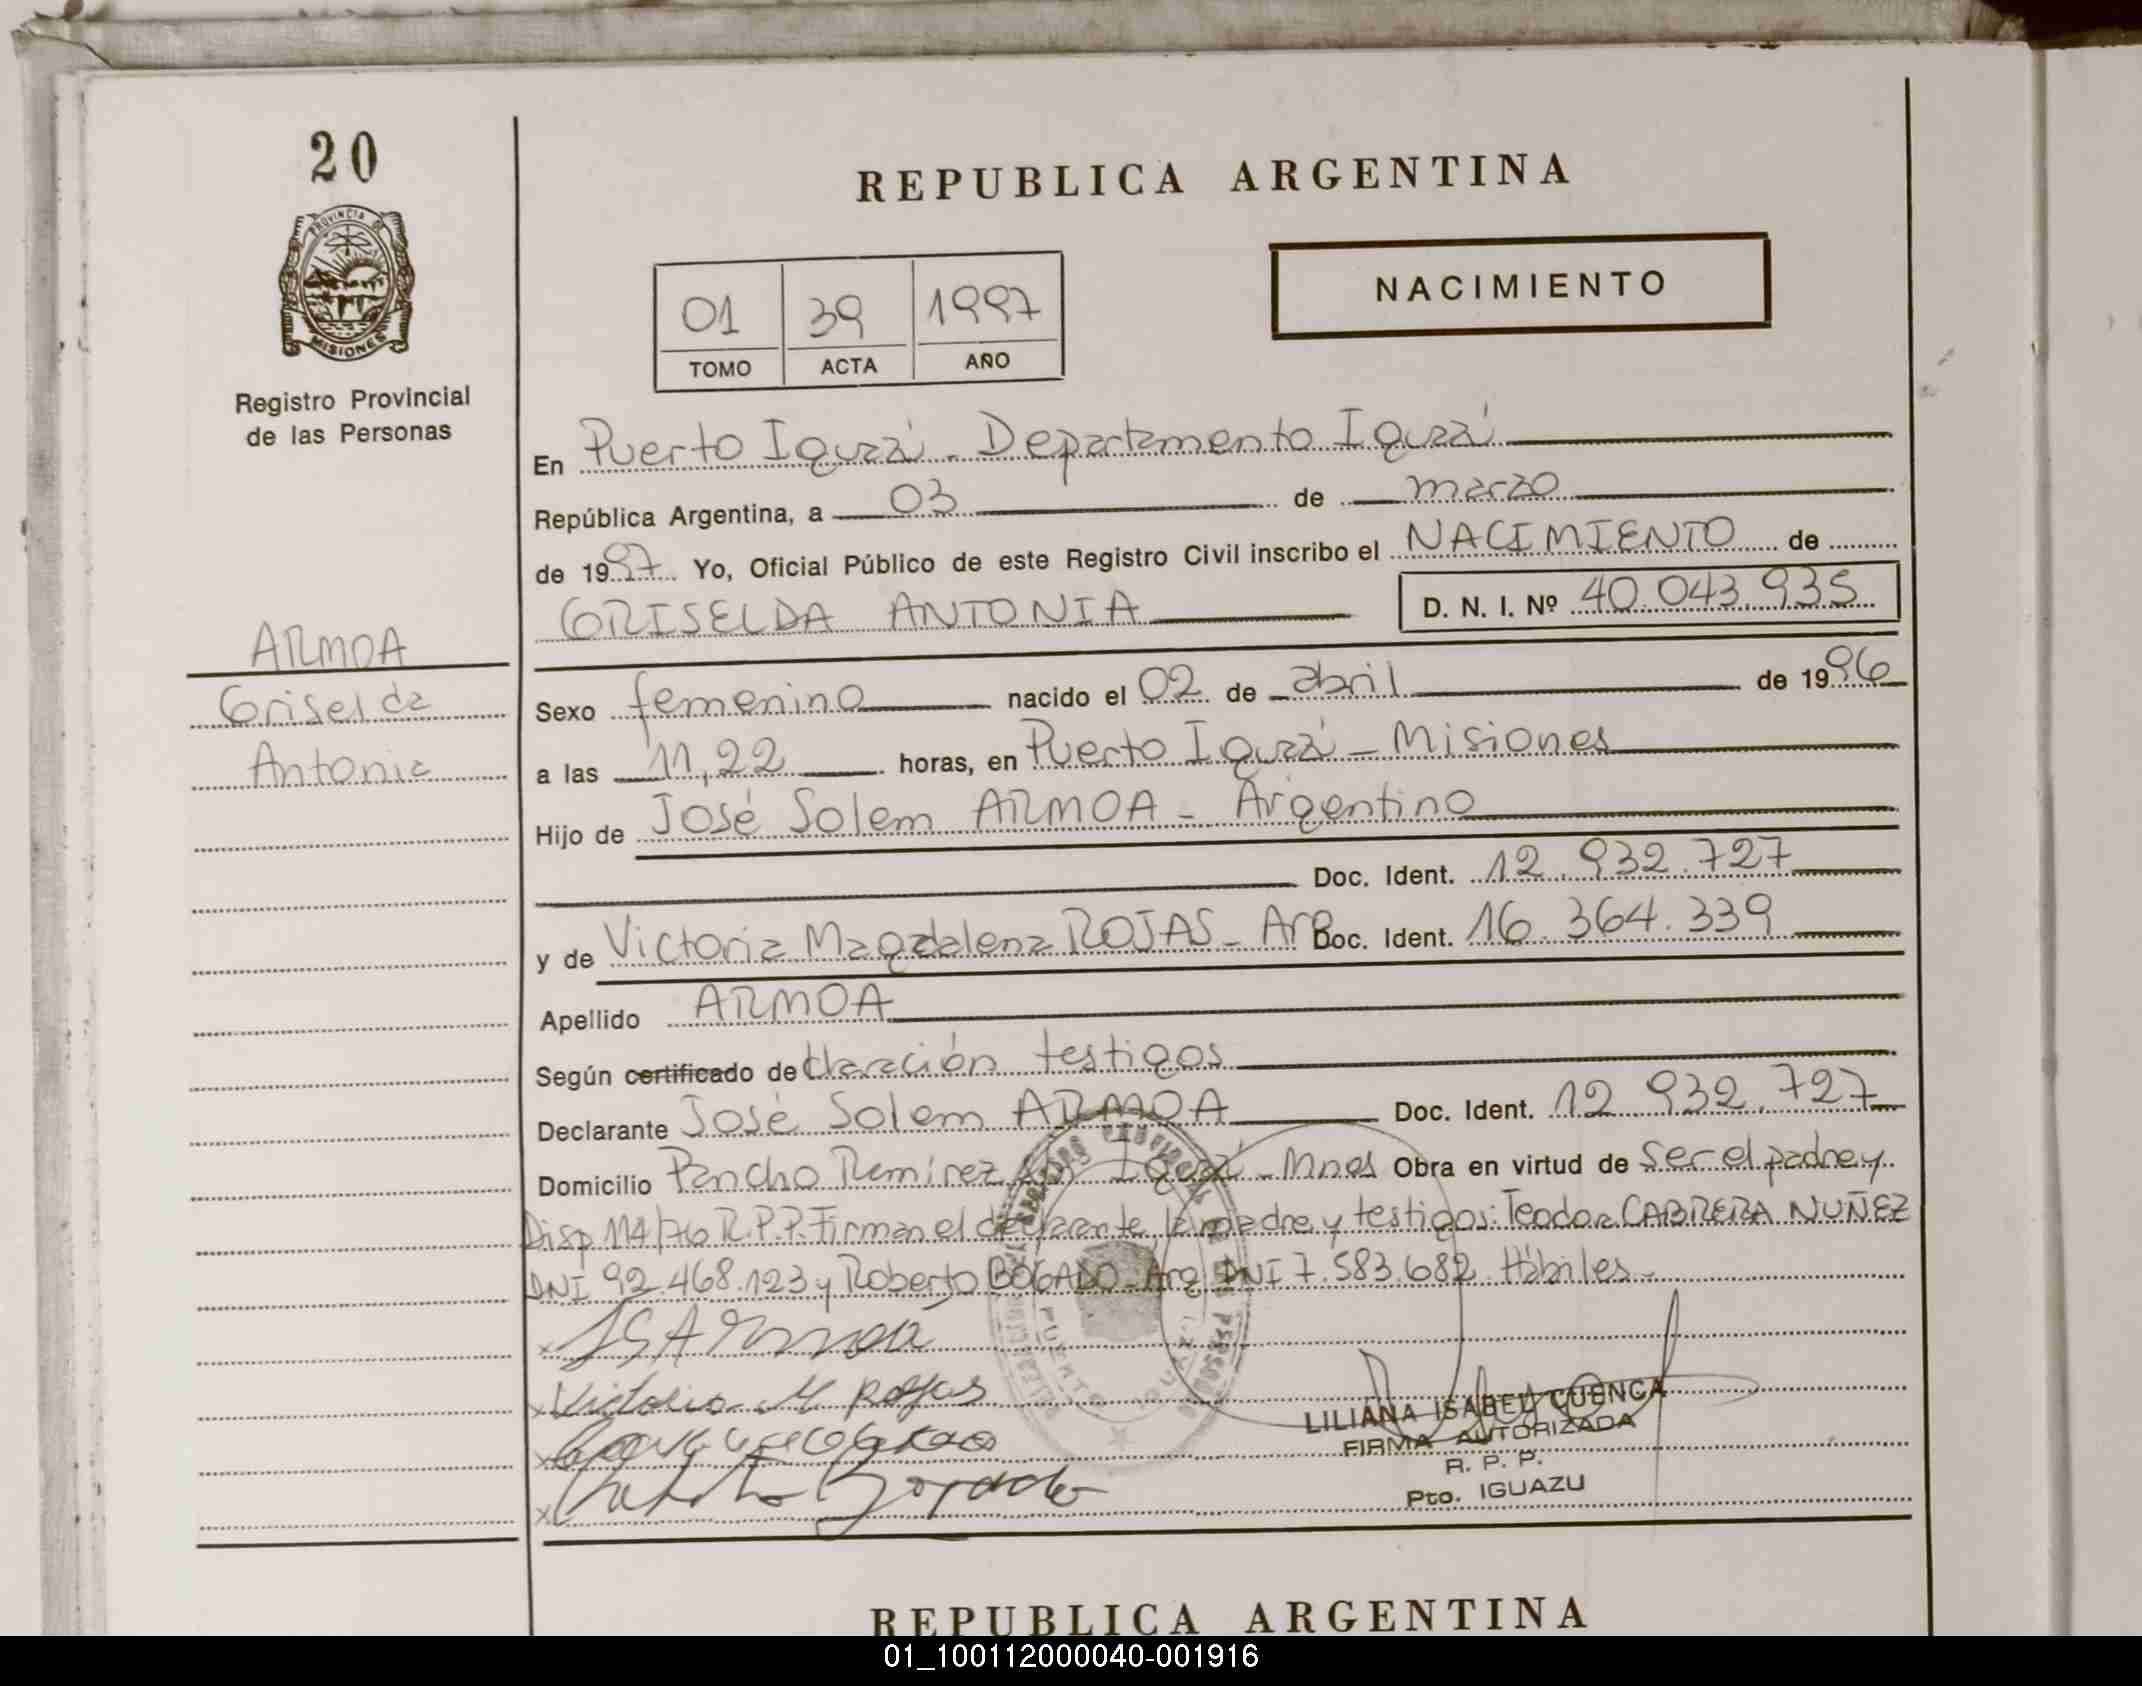 20
PROVINCIA DE
MISIONES
Registro Provincial
de las Personas
ARMOA
Griselda
Antonia
REPUBLICA ARGENTINA
01 39 1997
TOMO ACTA AÑO
NACIMIENTO
En Puerto Iguazú - Departamento Iguazú
República Argentina, a 03 de marzo
de 1997 Yo, Oficial Público de este Registro Civil inscribo el NACIMIENTO de
GRISELDA ANTONIA D. N. I. Nº 40.043.935
Sexo femenino nacido el 02 de abril de 1996
a las 11,22 horas, en Puerto Iguazú - Misiones
Hijo de José Solem ARMOA - Argentino
Doc. Ident. 12.932.727
y de Victoria Magdalena ROJAS - Arg Doc. Ident. 16.364.339
Apellido ARMOA
Según certificado declaración testigos
Declarante José Solem ARMOA Doc. Ident. 12.932.727
Domicilio Pancho Ramirez Iguazú - Mnes Obra en virtud de ser el padre y
Disp 114/76 R.P.P. Firman el declarante, la madre y testigos: Teodora CABRERA NUÑEZ
DNI 92.468.123 y Roberto BOGADO - Arg DNI 7.583.682 Hábiles -
x JSArmoa
x Victoria M Rojas
x
x Roberto Bogado
LILIANA ISABEL CUENCA
FIRMA AUTORIZADA
R. P. P.
Pto. IGUAZU
REPUBLICA ARGENTINA
01_100112000040-001916